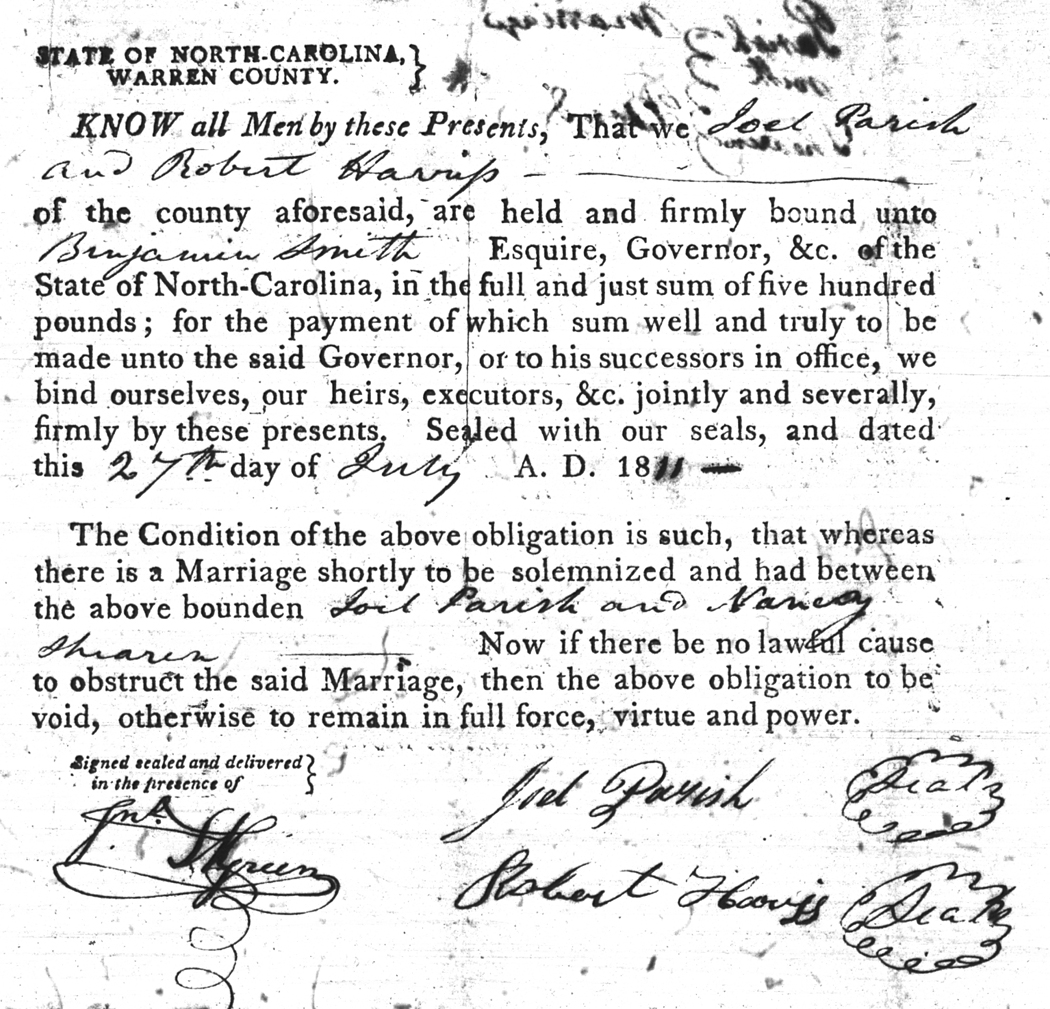 STATE OF NORTH-CAROLINA,
WARREN COUNTY.
KNOW all Men by these Presents, That we Joel Parish
and Robert Harriss
of the county aforesaid, are held and firmly bound unto
Benjamin Smith Esquire, Governor, &c. of the
State of North-Carolina, in the full and just sum of five hundred
pounds; for the payment of which sum well and truly to be
made unto the said Governor, or to his successors in office, we
bind ourselves, our heirs, executors, &c. jointly and severally,
firmly by these presents. Sealed with our seals, and dated
this 27th day of July A. D. 1811 —
The Condition of the above obligation is such, that whereas
there is a Marriage shortly to be solemnized and had between
the above bounden Joel Parish and Nancy
Shearen Now if there be no lawful cause
to obstruct the said Marriage, then the above obligation to be
void, otherwise to remain in full force, virtue and power.
Signed sealed and delivered
in the presence of
Joel Parish Seal
Jno.
Robert Harriss Seal